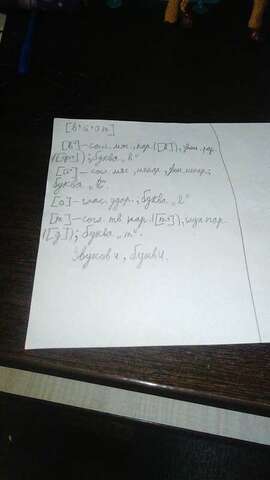 [в'й'от]
[в'] – согл. мяг., пар. ([в]), звон. пар.
([ф']); буква „в"
[й'] – согл. мяг., непар., звон. непар.;
буква „ь"
[о] – глас. удар.; буква „ё"
[т] – согл. тв. пар. ([т']), глух. пар.
([д]); буква „т".
Звуков 4, букв 4.